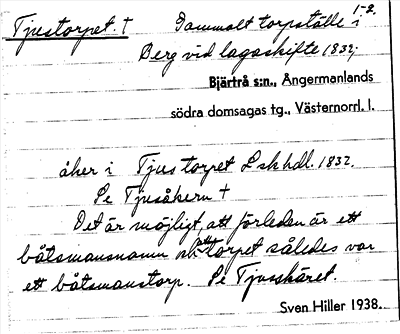 Tjustorpet. † Gammalt torpställe i 1-2.
Berg vid lagaskifte 1832;
Bjärtrå s:n., Ångermanlands
södra domsagas tg., Västernorrl. l.
åker i Tjustorpet Lskhdl. 1832.
Se Tjusåkern †
Det är möjligt, att förleden är ett
båtsmansnamn och att torpet således var
ett båtsmanstorp. Se Tjusskäret.
Sven Hiller 1938.